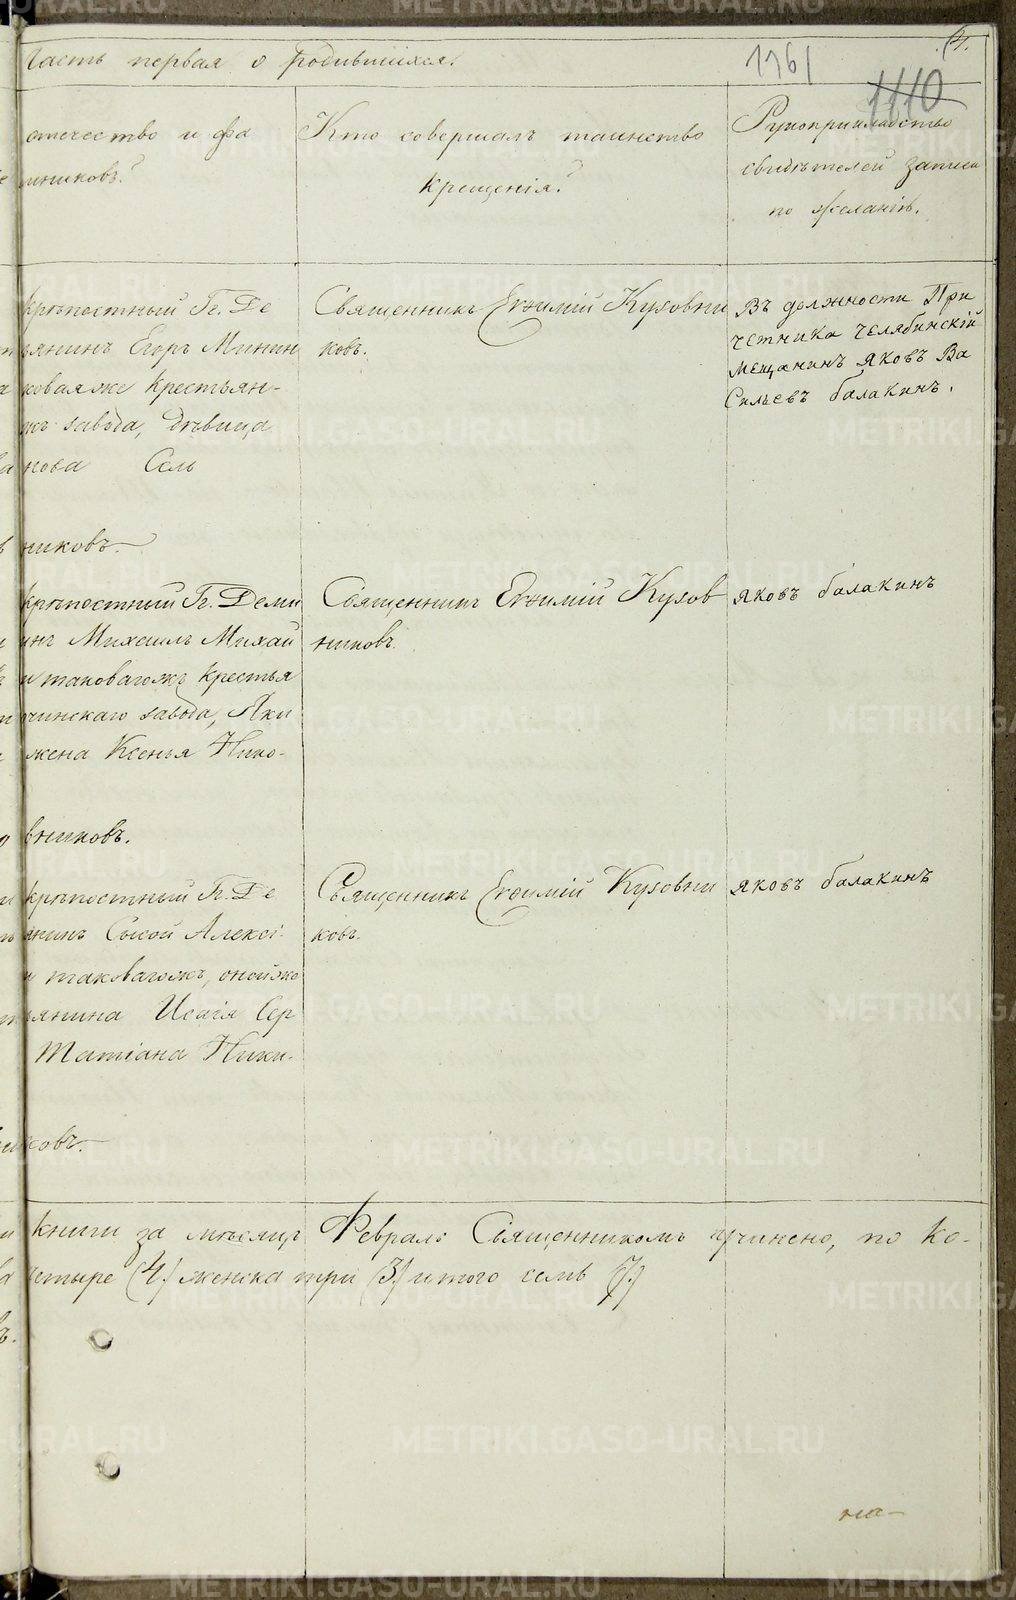 Часть первая о родившихся.
1161
1110
отчество и фа
мниковъ?
Кто совершалъ таинство
крещенія?
Рукоприкладство
свидѣтелей записи
по желанію.
крѣпостный Гг. Де
янинъ Егоръ Минин
коваяже крестьян-
завода, дѣвица
нова Сель
никовъ.
Священникъ Евѳимій Кузовни
ковъ.
Въ должности При
четника челябинскій
мещанинъ яковъ Ва
сильевъ балакинъ.
крѣпостный Гг. Деми
инъ Михаилъ Михай
и таковагожъ крестья
чинскаго завода, Яки
жена Ксенья Нико-
вниковъ.
Священникъ Евѳимій Кузов
никовъ.
яковъ балакинъ
крѣпостный Гг. Де
янинъ Сысой Алексі-
и таковагожъ, онойже
янина Исаія Сер
Татіана Ники-
ковъ.
Священникъ Евѳимій Кузовни
ковъ.
яковъ балакинъ
книги за мѣсяцъ Февраль Священникомъ учинено, по ко-
етыре (4.) женска три (3.) итого семь (7.)
на-
METRIKI.GASO-URAL.RU